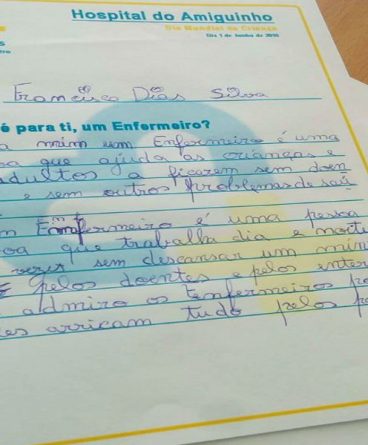 Hospital do Amiguinho
Dia Mundial da Criança
Dia 1 de Junho de
Francisca Dias Silva
é para ti, um Enfermeiro?
a mim um Enfermeiro é uma
oa que ajuda as crianças e
adultos a ficarem sem doen
e sem outros problemas de saú
m Enfermeiro é uma pessoa
oa que trabalha dia e noite
sem descansar um min
pelos doentes e pelos enfer
admiro os Enfermeiros po
es arricam tudo pelos p